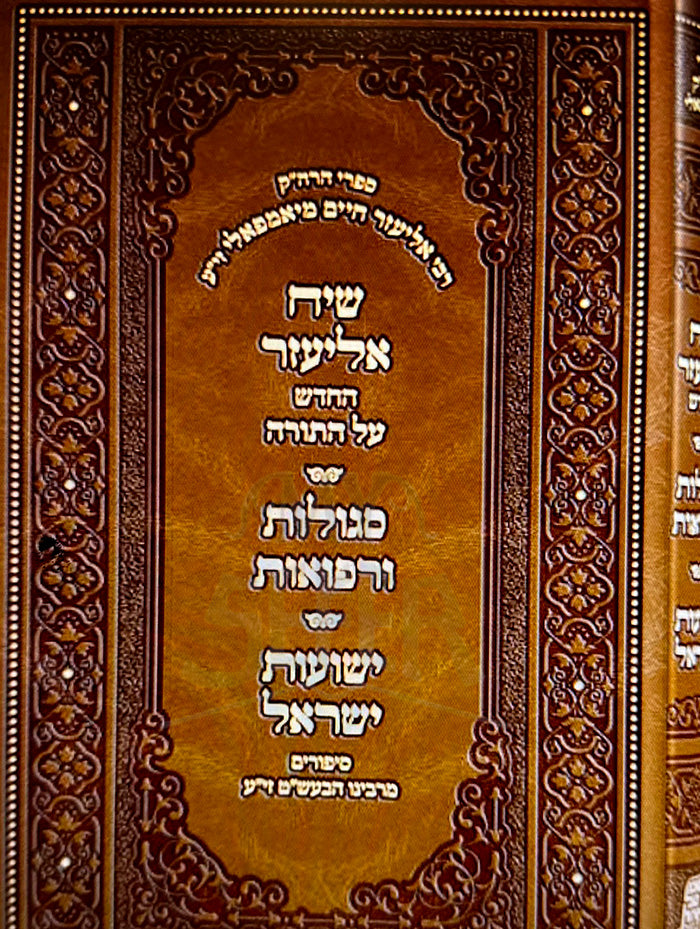 ספרי הרה״ק
רבי אליעזר חיים מיאמפאלי זי״ע
שיח
אליעזר
החדש
על התורה
סגולות
ורפואות
ישועות
ישראל
סיפורים
מרבינו הבעש״ט זי״ע